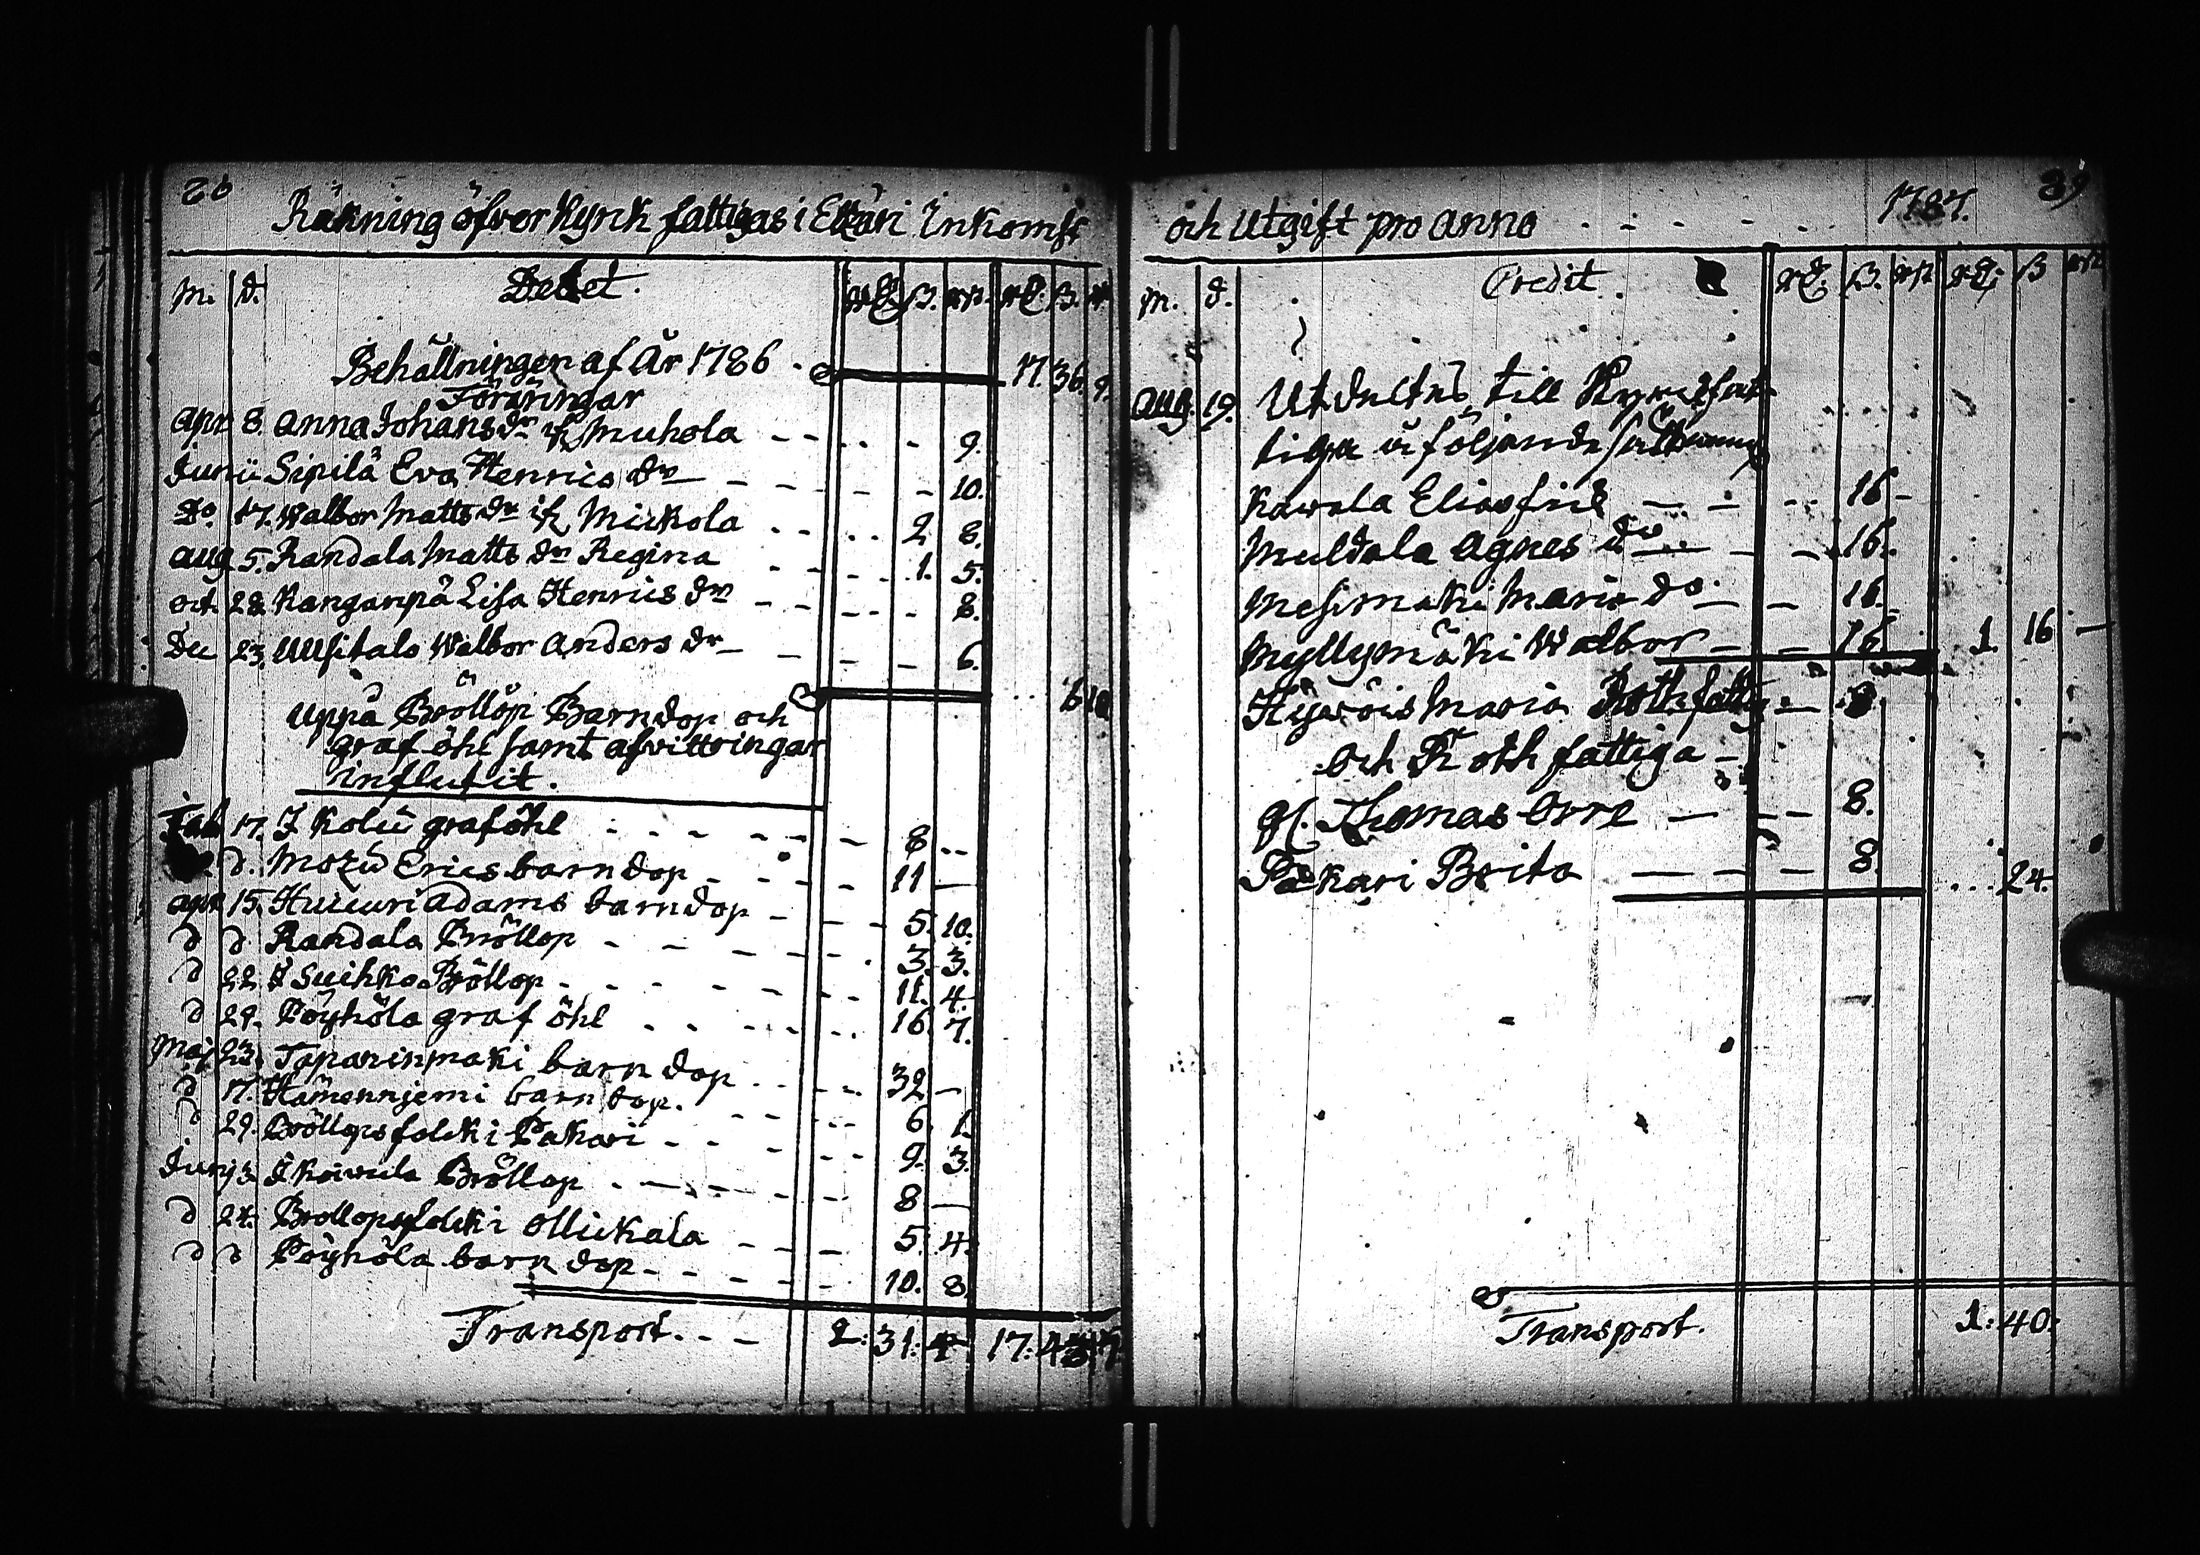 Räkning öfver Kyrk fattigas i Etzäri Inkomst
M. d. Debet. rd. ß. rst. rd. ß.
Behållningen af År 1786 17. 36. 9.
Föräringar
apr. 8. Anna Johans dr ifr Muhola 9.
Junii Sipilä Eva Henrics dr 10.
do. 17. Walbor Matts dr ifr Mickola 2 8.
Aug. 5. Randala Matts dr Regina 1. 5.
oct. 28. Kanganpä Lisa Henrics dr 8.
Dec 23. Uusitalo Walbor Anders dr 6.
6 10
Uppå Bröllop Barndop och
graf öhl samt afvittringar
influtit.
17. I Kolu graföhl 8 ..
d. Motzu Erics barndop 11 —
apr. 15. Huicuri Adams barndop 5. 10.
d d Randala Bröllop 3. 3.
d 22. I Suihko Bröllop 11. 4.
d 29. Pöyhöla graf öhl 16. 7.
Maj Taparinmaki barn dop 32 —
d 17. Hämennjemi barn dop. 6. 1.
d 29. Bröllops folck i Pakari 9. 3.
Junj 3. I Koiwula Bröllop 8 —
d 24. Bröllops folck i Ollickala 5. 4.
d d Pöyhöla barn dop 10. 8.
Transport. 2: 31: 4 17:
och Utgift pro anno 1787. 89
M. d. Credit. rd. ß. rst rd. ß rst
Aug. 19. Utdeltes till Kyrckfat-
tiga å följande
Kawala Elias frid 16 —
Muldala Agnes do 16.
Mesimaki Maria do. 16.
Myllymäki Walbor 16 1. 16 —
Maria Roth fattig 8.
och Roth fattiga
gl. Thomas Orre 8.
Päkari Brita 8. 24.
Transport. 1: 40: